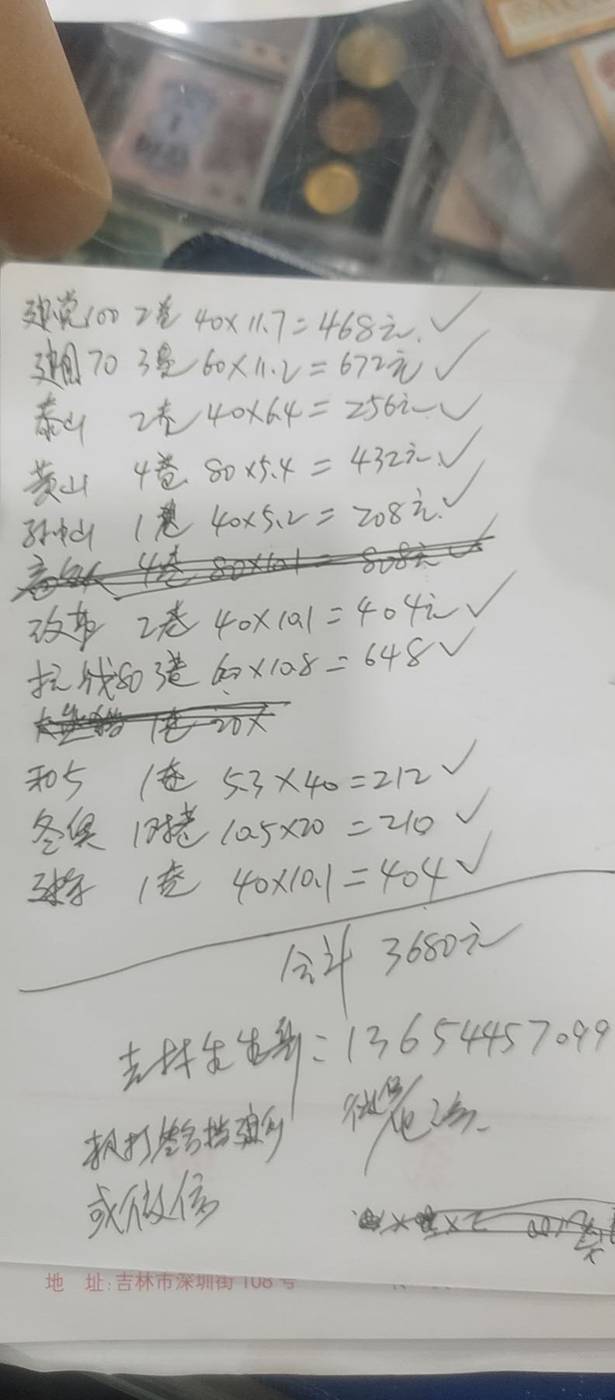 建党100 2卷 40×11.7=468元 ✓
建国70 3卷 60×11.2=672元 ✓
泰山 2卷 40×6.4=256元 ✓
黄山 4卷 80×5.4=432元 ✓
孙中山 1卷 40×5.2=208元 ✓
4卷 80×10.1=808元 ✓
改革 2卷 40×10.1=404元 ✓
抗战80 3卷 60×10.8=648 ✓
1卷 20×
和5 1卷 5.3×40=212 ✓
冬奥 1卷 10.5×20=210 ✓
1卷 40×10.1=404 ✓
合计 3680元
吉林 :13654457099
或微信
地 址:吉林市深圳街108号